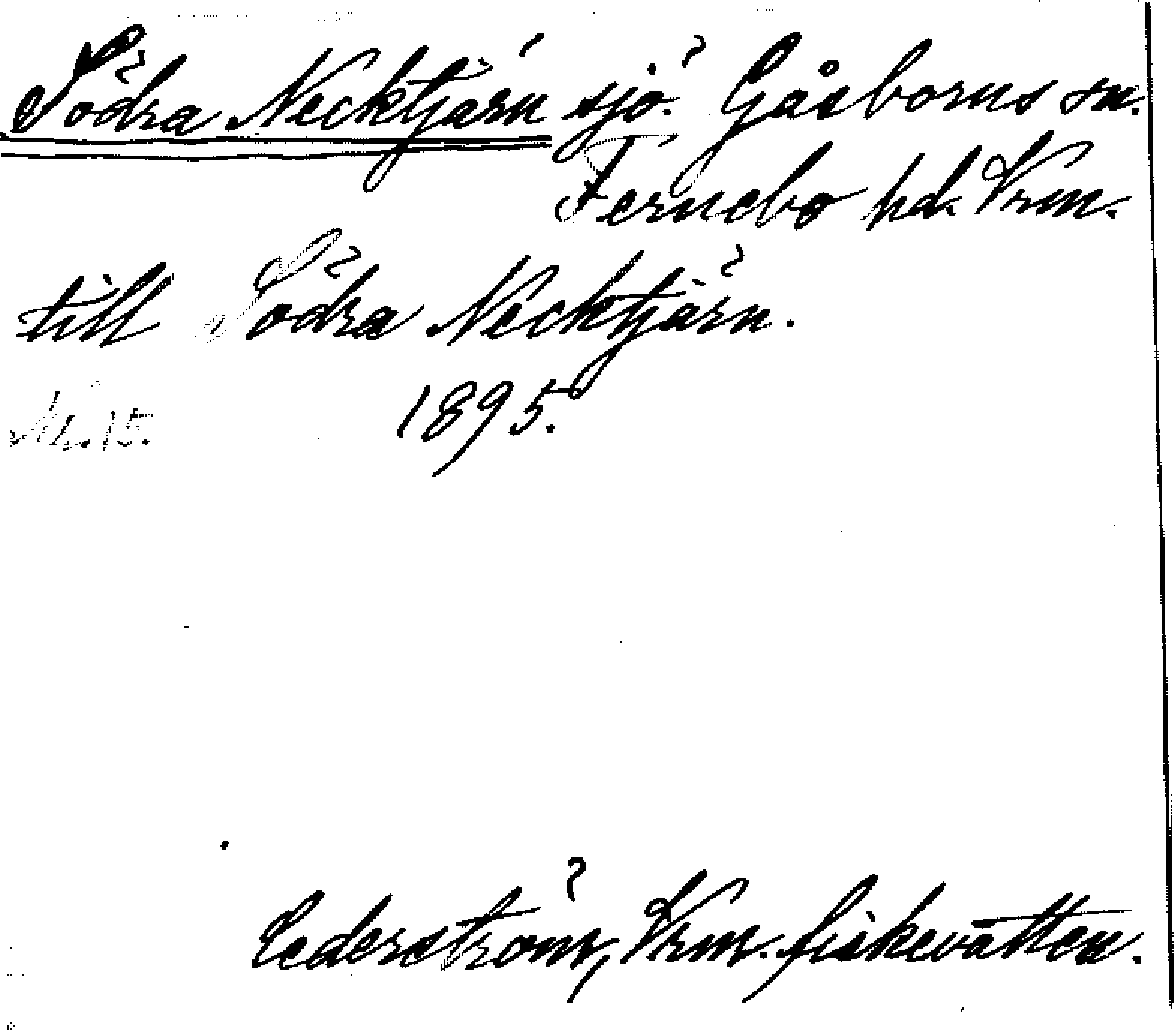 Södra Necktjärn sjö. Gåsborns sn.
Fernebo hd. Vrm.
till Södra Necktjärn.
Nr. 15. 1895.
Cederström, Vrm. fiskevatten.